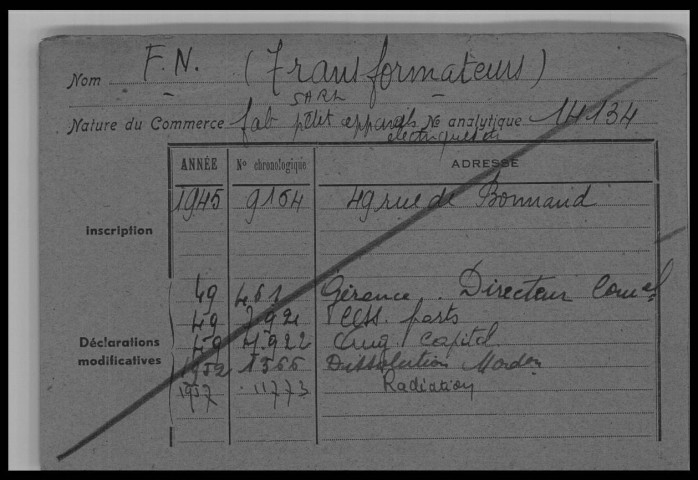 Nom F. N. (Transformateurs)
SARL
Nature du Commerce fab petit appareils No analytique 14134
électriques
ANNÉE No chronologique ADRESSE
Inscription 1945 9164 49 rue de Bonnaud
49 461 Gérance. Directeur Comal
49 792 Cess. parts
Déclarations modificatives 49 4922 Aug. Capital
1952 1566 Dissolution
1957 11773 Radiation